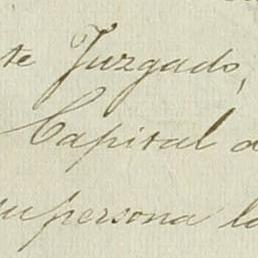 te Juzgado,
Capital a
su persona la